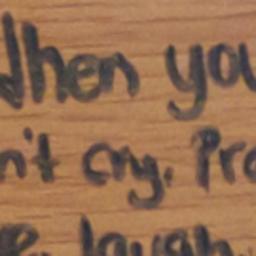 When you
n't cry. Pro
laugh